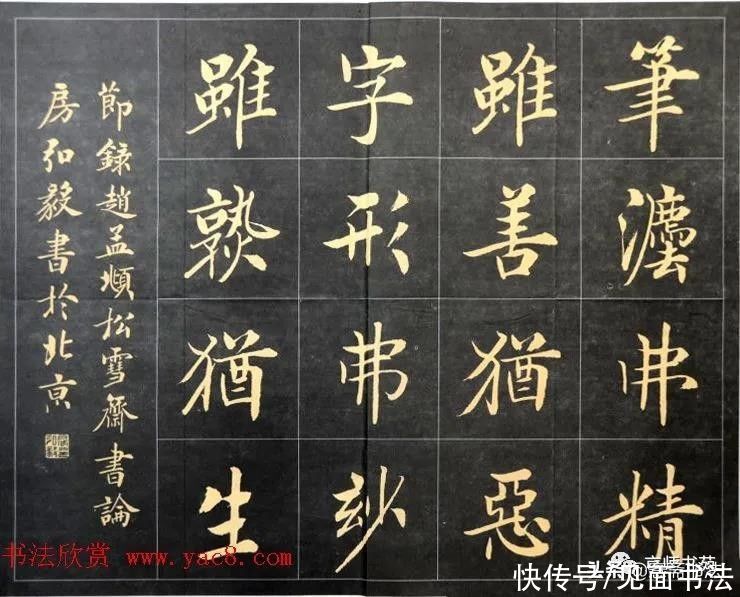 筆灋弗精
雖善猶惡
字形弗玅
雖熟猶生
節録趙孟頫松雪齋書論
房弘毅書於北亰
书法欣赏 www.yac8.com
快传号/见面书法